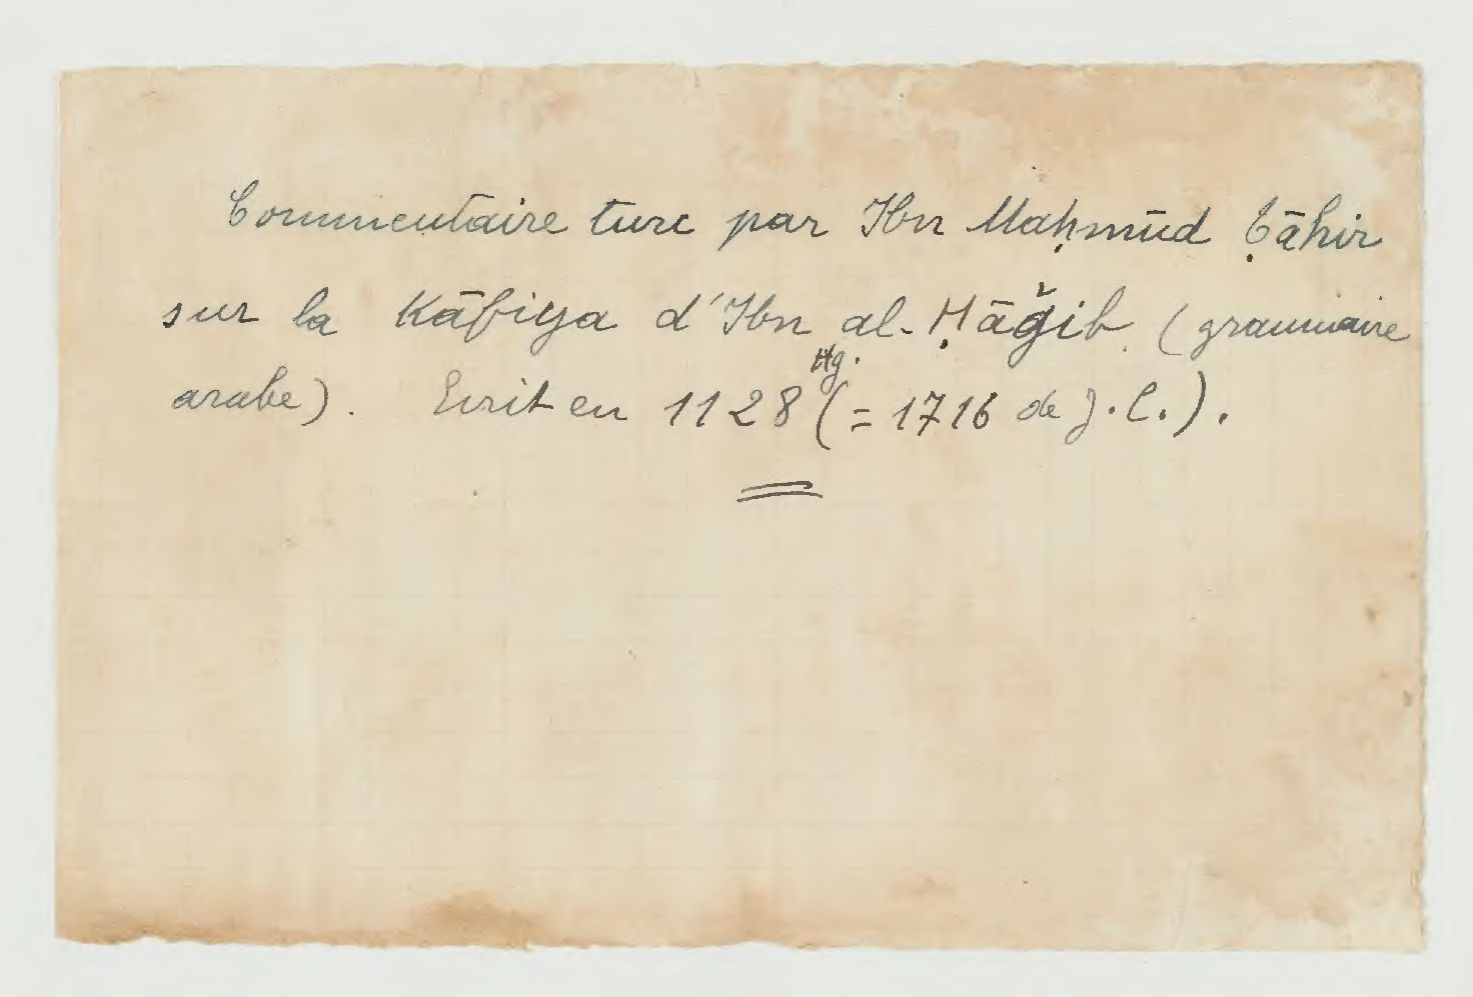 Commentaire turc par Ibn Maḥmūd Ṭāhir
sur la Kāfiya d'Ibn al-Ḥāǧib (grammaire
arabe). Ecrit en 1128 Hg. (= 1716 de J.C.).